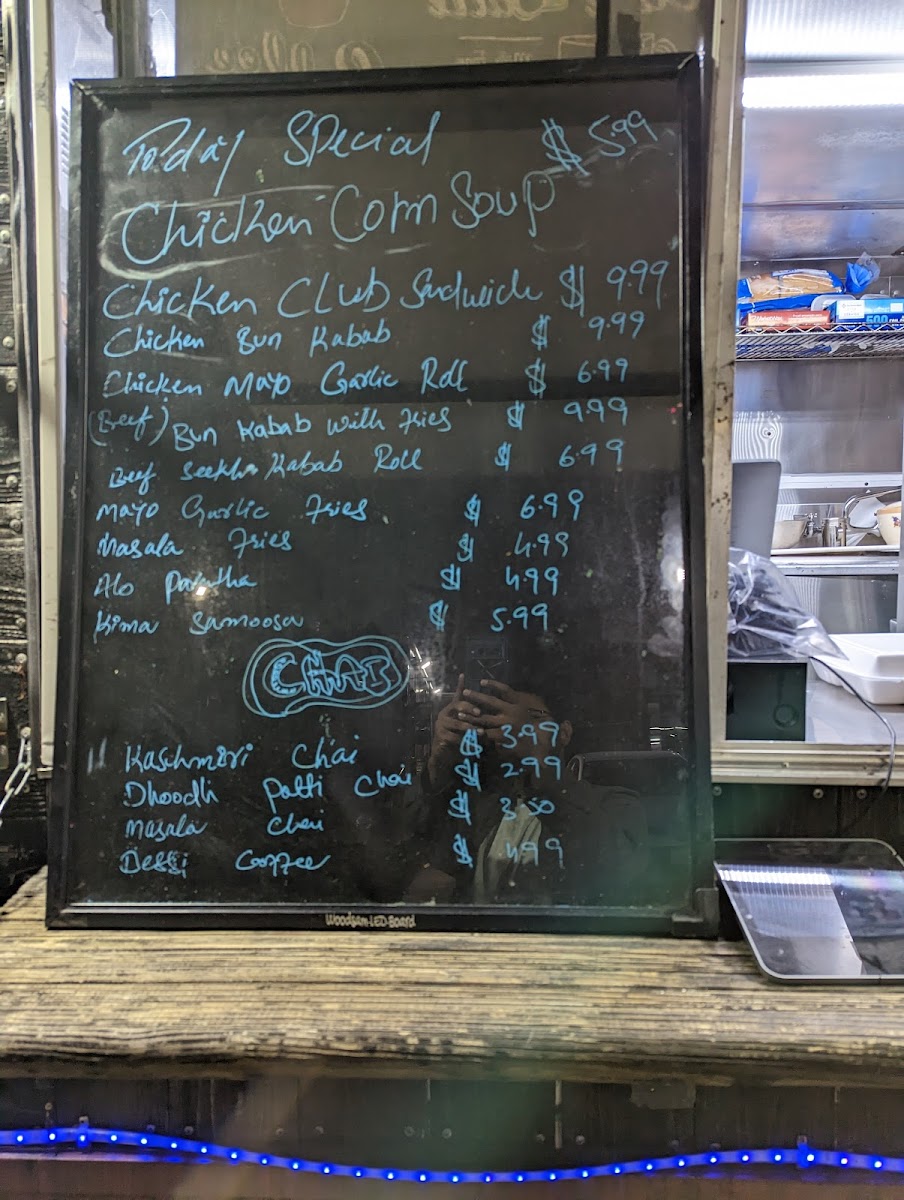 Today Special $ 5.99
Chicken Corn Soup
Chicken Club Sandwich $ 9.99
Chicken Bun Kabab $ 9.99
Chicken Mayo Garlic Roll $ 6.99
(Beef) Bun Kabab with Fries $ 9.99
Beef Seekh Kabab Roll $ 6.99
Mayo Garlic Fries $ 6.99
Masala Fries $ 4.99
Alo Paratha $ 4.99
Kima Samoosa $ 5.99
CHAI
Kaschmiri Chai $ 3.99
Dhoodh Patti Chai $ 2.99
Masala Chai $ 3.50
Dessi Coffee $ 4.99
Woodsam LED Board
500